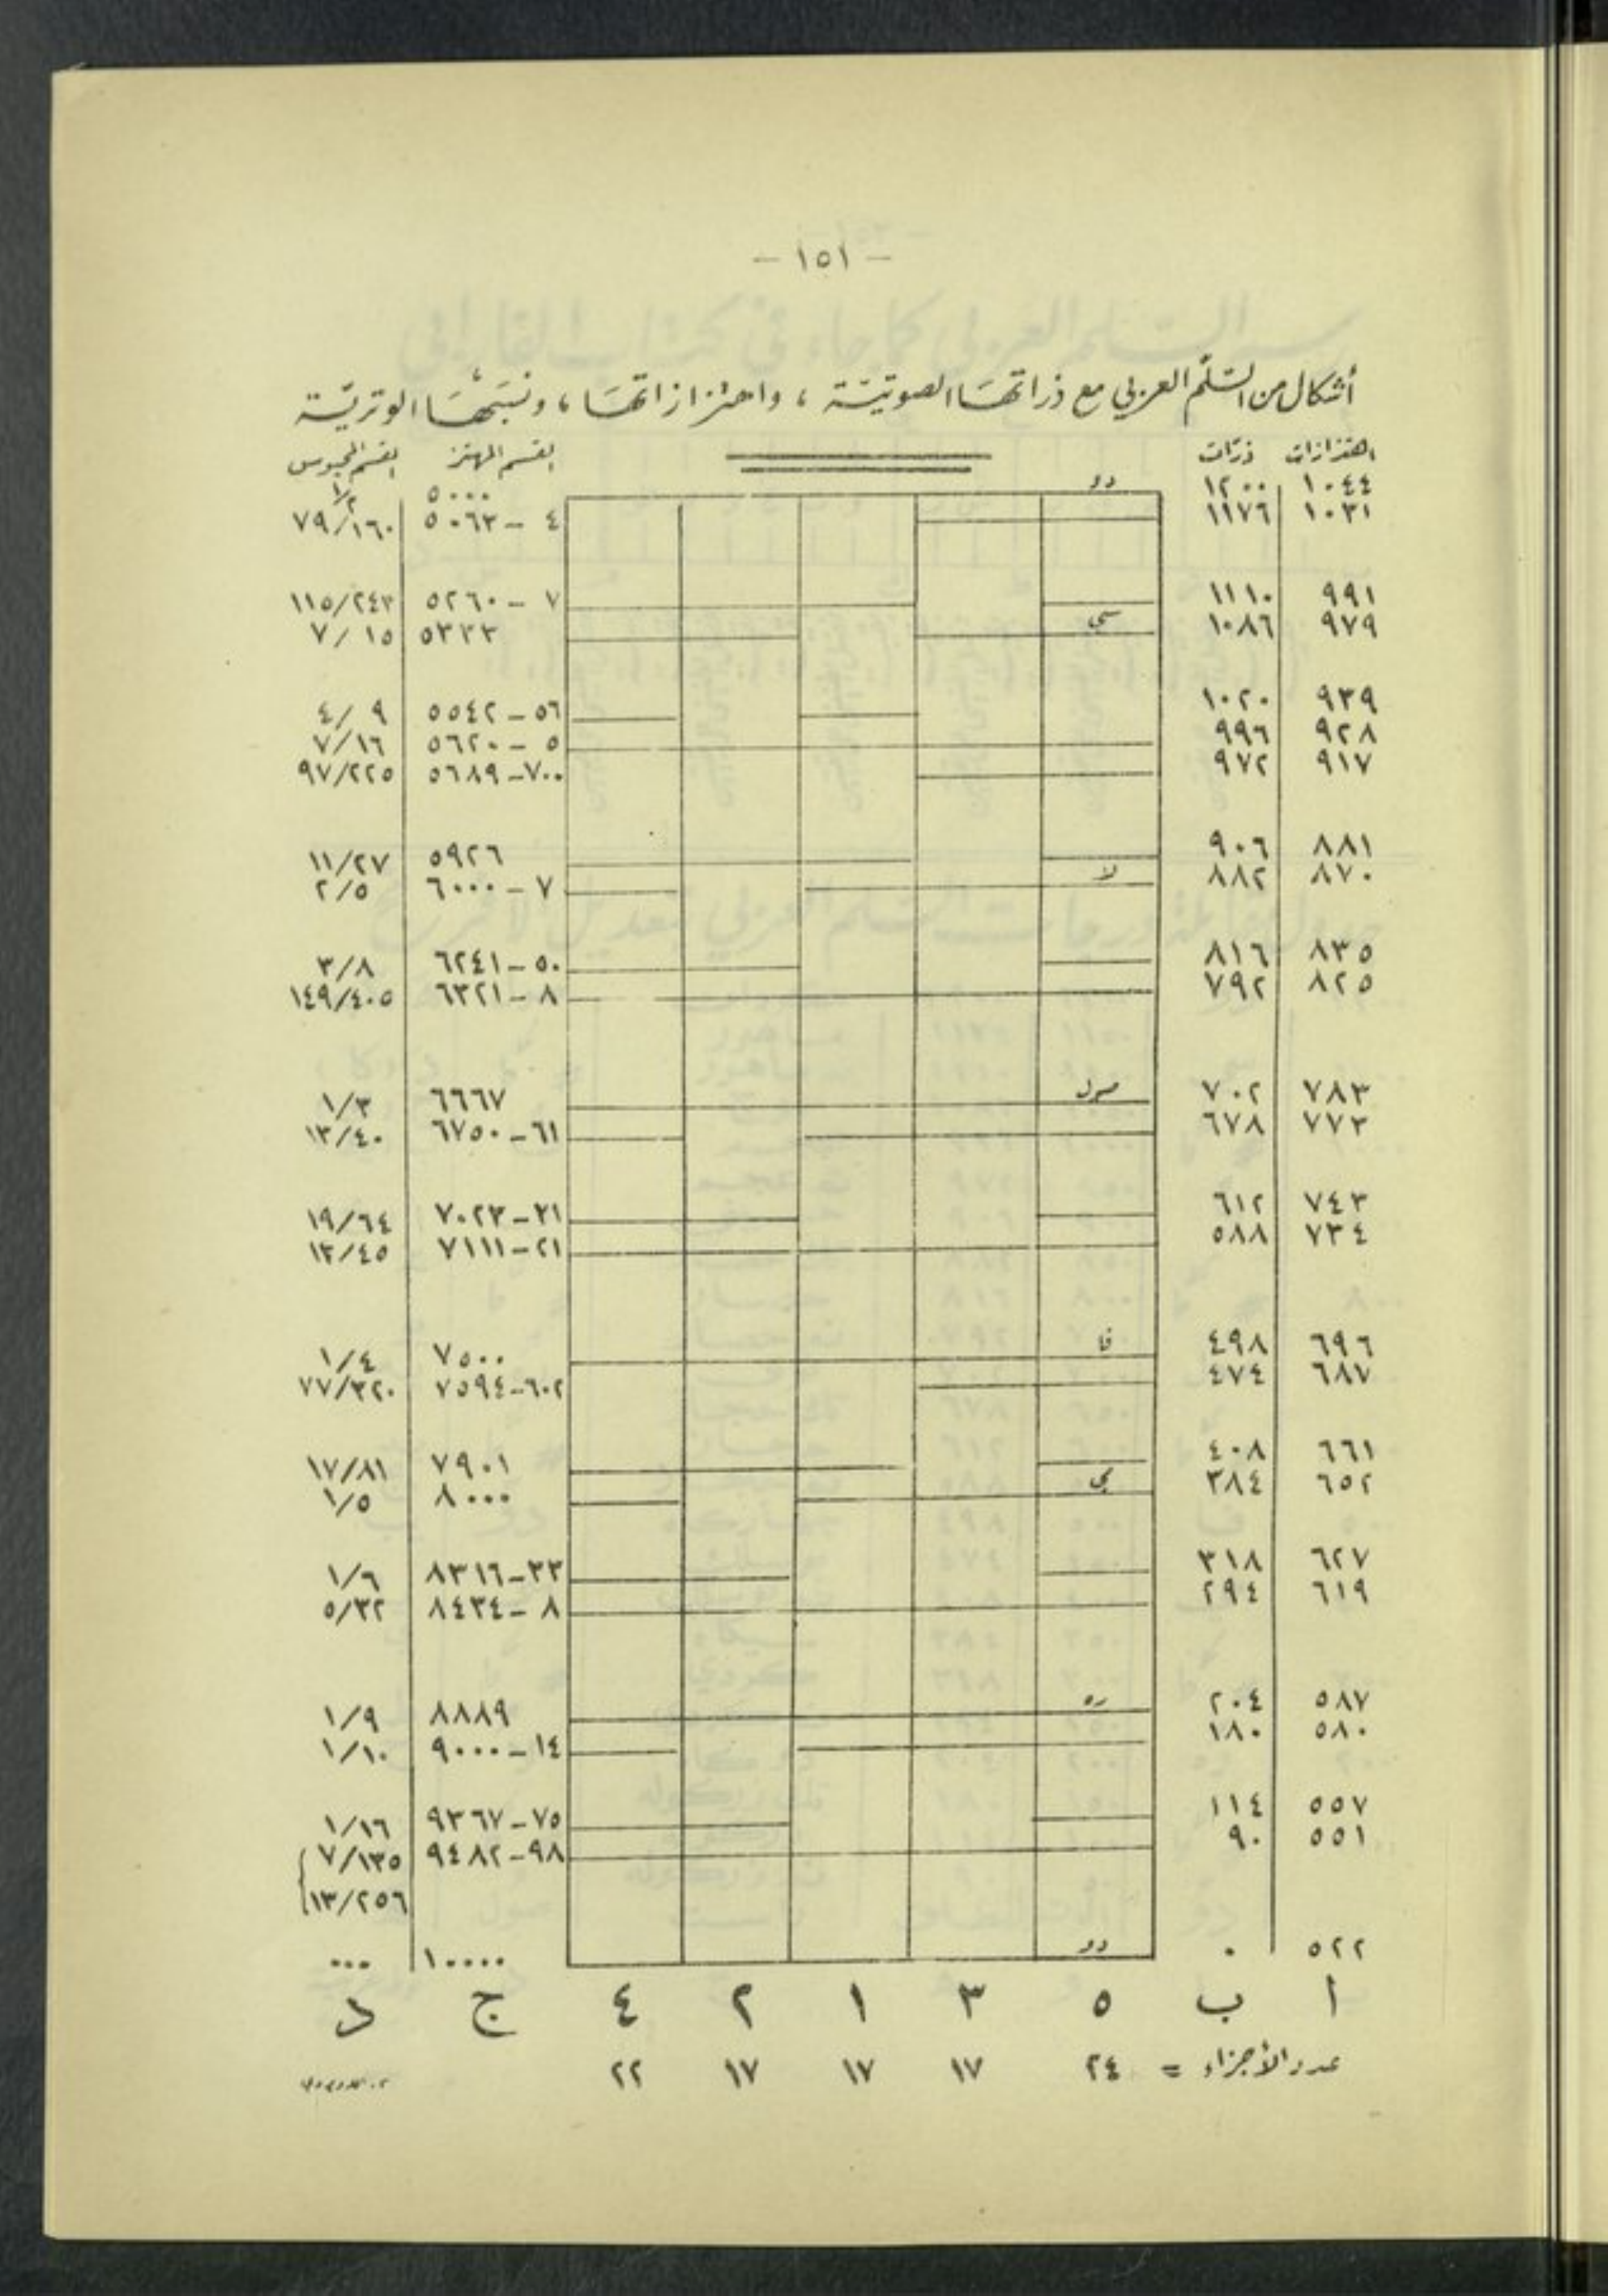 - ١٥١ -
أشكال من السلّم العربي مع ذراتها الصوتيّة ، واهتزازاتها ، ونسبتها الوتريّة
اهتزازات ذرّات القسم المهتز القسم المحبوس
١٠٤٤ ١٢٠٠ دو ٥٠٠٠ ١/٢
١٠٣١ ١١٧٦ ٥٠٦٣-٤ ٧٩/١٦٠
٩٩١ ١١١٠ ٥٢٦٠-٧ ١١٥/٢٤٣
٩٧٩ ١٠٨٦ سي ٥٣٣٣ ٧/١٥
٩٣٩ ١٠٢٠ ٥٥٤٢-٥٦ ٤/٩
٩٢٨ ٩٩٦ ٥٦٢٠-٥ ٧/١٦
٩١٧ ٩٧٢ ٥٦٨٩-٧٠٠ ٩٧/٢٢٥
٨٨١ ٩٠٦ ٥٩٢٦ ١١/٢٧
٨٧٠ ٨٨٢ لا ٦٠٠٠-٧ ٢/٥
٨٣٥ ٨١٦ ٦٢٤١-٥٠ ٣/٨
٨٢٥ ٧٩٢ ٦٣٢١-٨ ١٤٩/٤٠٥
٧٨٣ ٧٠٢ صول ٦٦٦٧ ١/٣
٧٧٣ ٦٧٨ ٦٧٥٠-٦١ ١٣/٤٠
٧٤٣ ٦١٢ ٧٠٢٣-٢١ ١٩/٦٤
٧٣٤ ٥٨٨ ٧١١١-٢١ ١٣/٤٥
٦٩٦ ٤٩٨ فا ٧٥٠٠ ١/٤
٦٨٧ ٤٧٤ ٧٥٩٤-٦٠٢ ٧٧/٣٢٠
٦٦١ ٤٠٨ ٧٩٠١ ١٧/٨١
٦٥٢ ٣٨٤ مي ٨٠٠٠ ١/٥
٦٢٧ ٣١٨ ٨٣١٦-٣٣ ١/٦
٦١٩ ٢٩٤ ٨٤٣٤-٨ ٥/٣٢
٥٨٧ ٢٠٤ ره ٨٨٨٩ ١/٩
٥٨٠ ١٨٠ ٩٠٠٠-١٤ ١/١٠
٥٥٧ ١١٤ ٩٣٦٧-٧٥ ١/١٦
٥٥١ ٩٠ ٩٤٨٢-٩٨ ٧/١٣٥
١٣/٢٥٦
٥٢٢ ٠ دو ١٠٠٠٠ ...
ا ب ٥ ٣ ١ ٢ ٤ ج د
عدد الأجزاء = ٢٤ ١٧ ١٧ ١٧ ٢٢